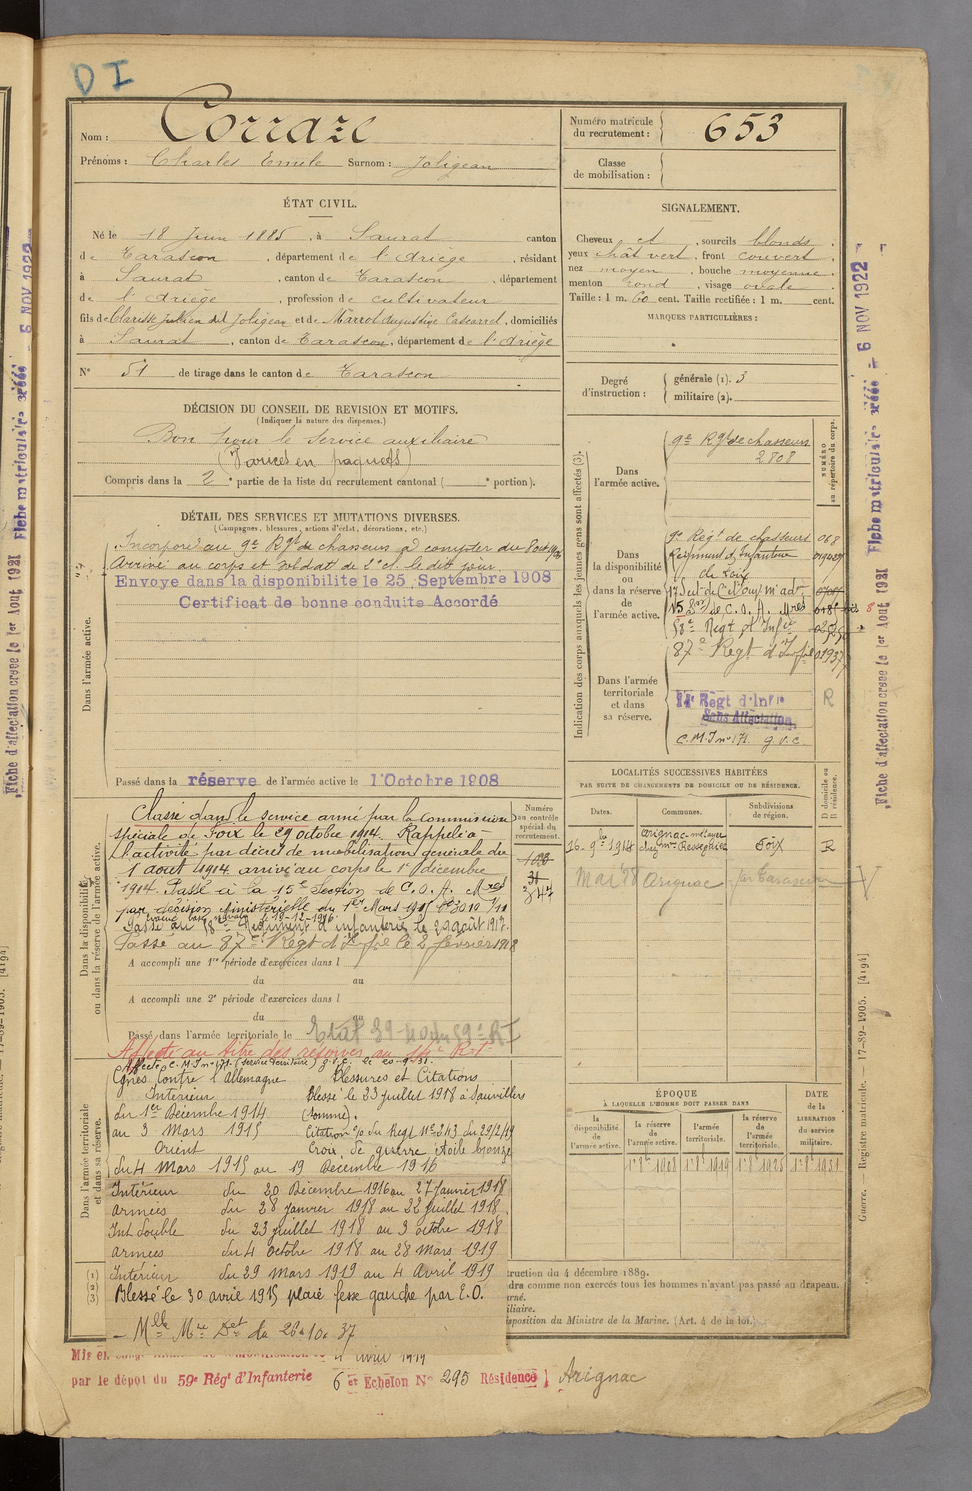 D I
Nom : Corraze
Prénoms : Charles Emile Surnom : Joligean
Numéro matricule
du recrutement : 653
Classe
de mobilisation :
ÉTAT CIVIL.
Né le 18 Juin 1885, à Saurat canton
de Tarascon, département de l'Ariège, résidant
à Saurat, canton de Tarascon, département
de l'Ariège, profession de cultivateur
fils de Clarisse Julien dit Joligean et de Marrot Augustine Cascarret, domiciliés
à Saurat, canton de Tarascon, département de l'Ariège
N° 51 de tirage dans le canton de Tarascon
SIGNALEMENT.
Cheveux et, sourcils blonds.
yeux chât vert, front couvert.
nez moyen, bouche moyenne.
menton rond, visage ovale.
Taille : 1 m. 60 cent. Taille rectifiée : 1 m. cent.
MARQUES PARTICULIÈRES :
Degré
d'instruction :
générale (1). 3
militaire (2).
DÉCISION DU CONSEIL DE REVISION ET MOTIFS.
(Indiquer la nature des dispenses.)
Bon pour le service auxiliaire
(Varices en paquets)
Compris dans la 2e partie de la liste du recrutement cantonal ( e portion).
DÉTAIL DES SERVICES ET MUTATIONS DIVERSES.
(Campagnes, blessures, actions d'éclat, décorations, etc.)
Dans l'armée active.
Incorporé au 9e Rgt de chasseurs à compter du 8 oct 1906
Arrivé au corps et soldat de 2e cl. le dit jour.
Envoye dans la disponibilite le 25 Septembre 1908
Certificat de bonne conduite Accordé
Passé dans la réserve de l'armée active le 1 Octobre 1908
Indication des corps auxquels les jeunes gens sont affectés (3).
NUMÉRO
au répertoire du corps.
Dans
l'armée active.
9e Rgt de chasseurs
2808
Dans
la disponibilité
ou
dans la réserve
de
l'armée active.
9e Régt de chasseurs 068
Régiment d'infanterie
de Foix
15 Son de C. O. A. Mres
58e Regt d'Infie
87e Regt d'Infie 01937
Dans l'armée
territoriale
et dans
sa réserve.
14e Régt d'Infie R
Sans Affectation.
C.M.I n° 171. g.v.c.
Dans la disponibilité
ou dans la réserve de l'armée active.
Numéro
au contrôle
spécial du
recrutement.
Classé dans le service armé par la Commission
spéciale de Foix le 29 octobre 1914. Rappelé à
l'activité par décret de mobilisation générale du
1 août 1914 arrivé au corps le 1er décembre
1914. Passé à la 15e Section de C. O. A. Mres
par décision Ministérielle du 1er Mars 1915
Passé au 58e Régiment d'infanterie le 29 août 1917.
Passé au 87e Regt d'Infie le 2 février 1918
347
A accompli une 1re période d'exercices dans l
du au
A accompli une 2e période d'exercices dans l
du au
Passé dans l'armée territoriale le
Affecté au titre des réserves au 14e R.I.
LOCALITÉS SUCCESSIVES HABITÉES
PAR SUITE DE CHANGEMENTS DE DOMICILE OU DE RÉSIDENCE.
Dates. Communes. Subdivisions
de région.
D domicile ou
R résidence.
16-9bre 1914 Arignac métayer Foix R
chez Mr Rességuier
Mai 18 Arignac par Tarascon
Dans l'armée territoriale
et dans sa réserve.
Affecté C.M.I n° 171. (service territorial) g.v.c.
Cgnes contre l'Allemagne Blessures et Citations
Intérieur Blessé le 23 juillet 1918 à Sauvillers
du 1er Décembre 1914 (Somme).
au 3 Mars 1915 Citation o/o du Regt n° 243 du 29/2/19
Orient Croix de guerre étoile bronze
du 4 Mars 1915 au 19 Décembre 1916
Intérieur du 20 Décembre 1916 au 27 Janvier 1918
armées du 28 janvier 1918 au 22 juillet 1918.
Int double du 23 juillet 1918 au 3 octobre 1918
armées du 4 octobre 1918 au 28 Mars 1919
Intérieur du 29 Mars 1919 au 4 Avril 1919
Blessé le 30 avril 1915 plaie fesse gauche par E.O.
ÉPOQUE
À LAQUELLE L'HOMME DOIT PASSER DANS
la
disponibilité
de
l'armée active.
la réserve
de
l'armée active.
l'armée
territoriale.
la réserve
de
l'armée
territoriale.
DATE
de la
LIBÉRATION
du service
militaire.
1 8bre 1908 1 8bre 1919 1 8bre 1925 1 8bre 1931
(1)
(2)
(3)
truction du 4 décembre 1889.
dra comme non exercés tous les hommes n'ayant pas passé au drapeau.
urné.
iliaire.
isposition du Ministre de la Marine. (Art. 4 de la loi.)
4 avril 1919
par le dépot du 59e Régt d'Infanterie 6 et Echelon N° 295 Résidence Arignac
Fiche d'affectation creee le 1er Aout 1921 Fiche matriculaire créée - 6 NOV 1922
Guerre. — Registre matricule. — 17-89-1905. [4194]